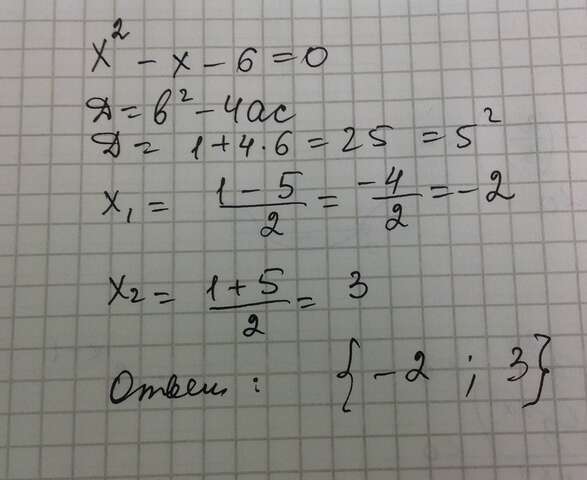 x² - x - 6 = 0
Д = в² - 4ac
Д = 1 + 4 · 6 = 25 = 5²
x₁ = (1 - 5)/2 = -4/2 = -2
x₂ = (1 + 5)/2 = 3
Ответ: {-2 ; 3}